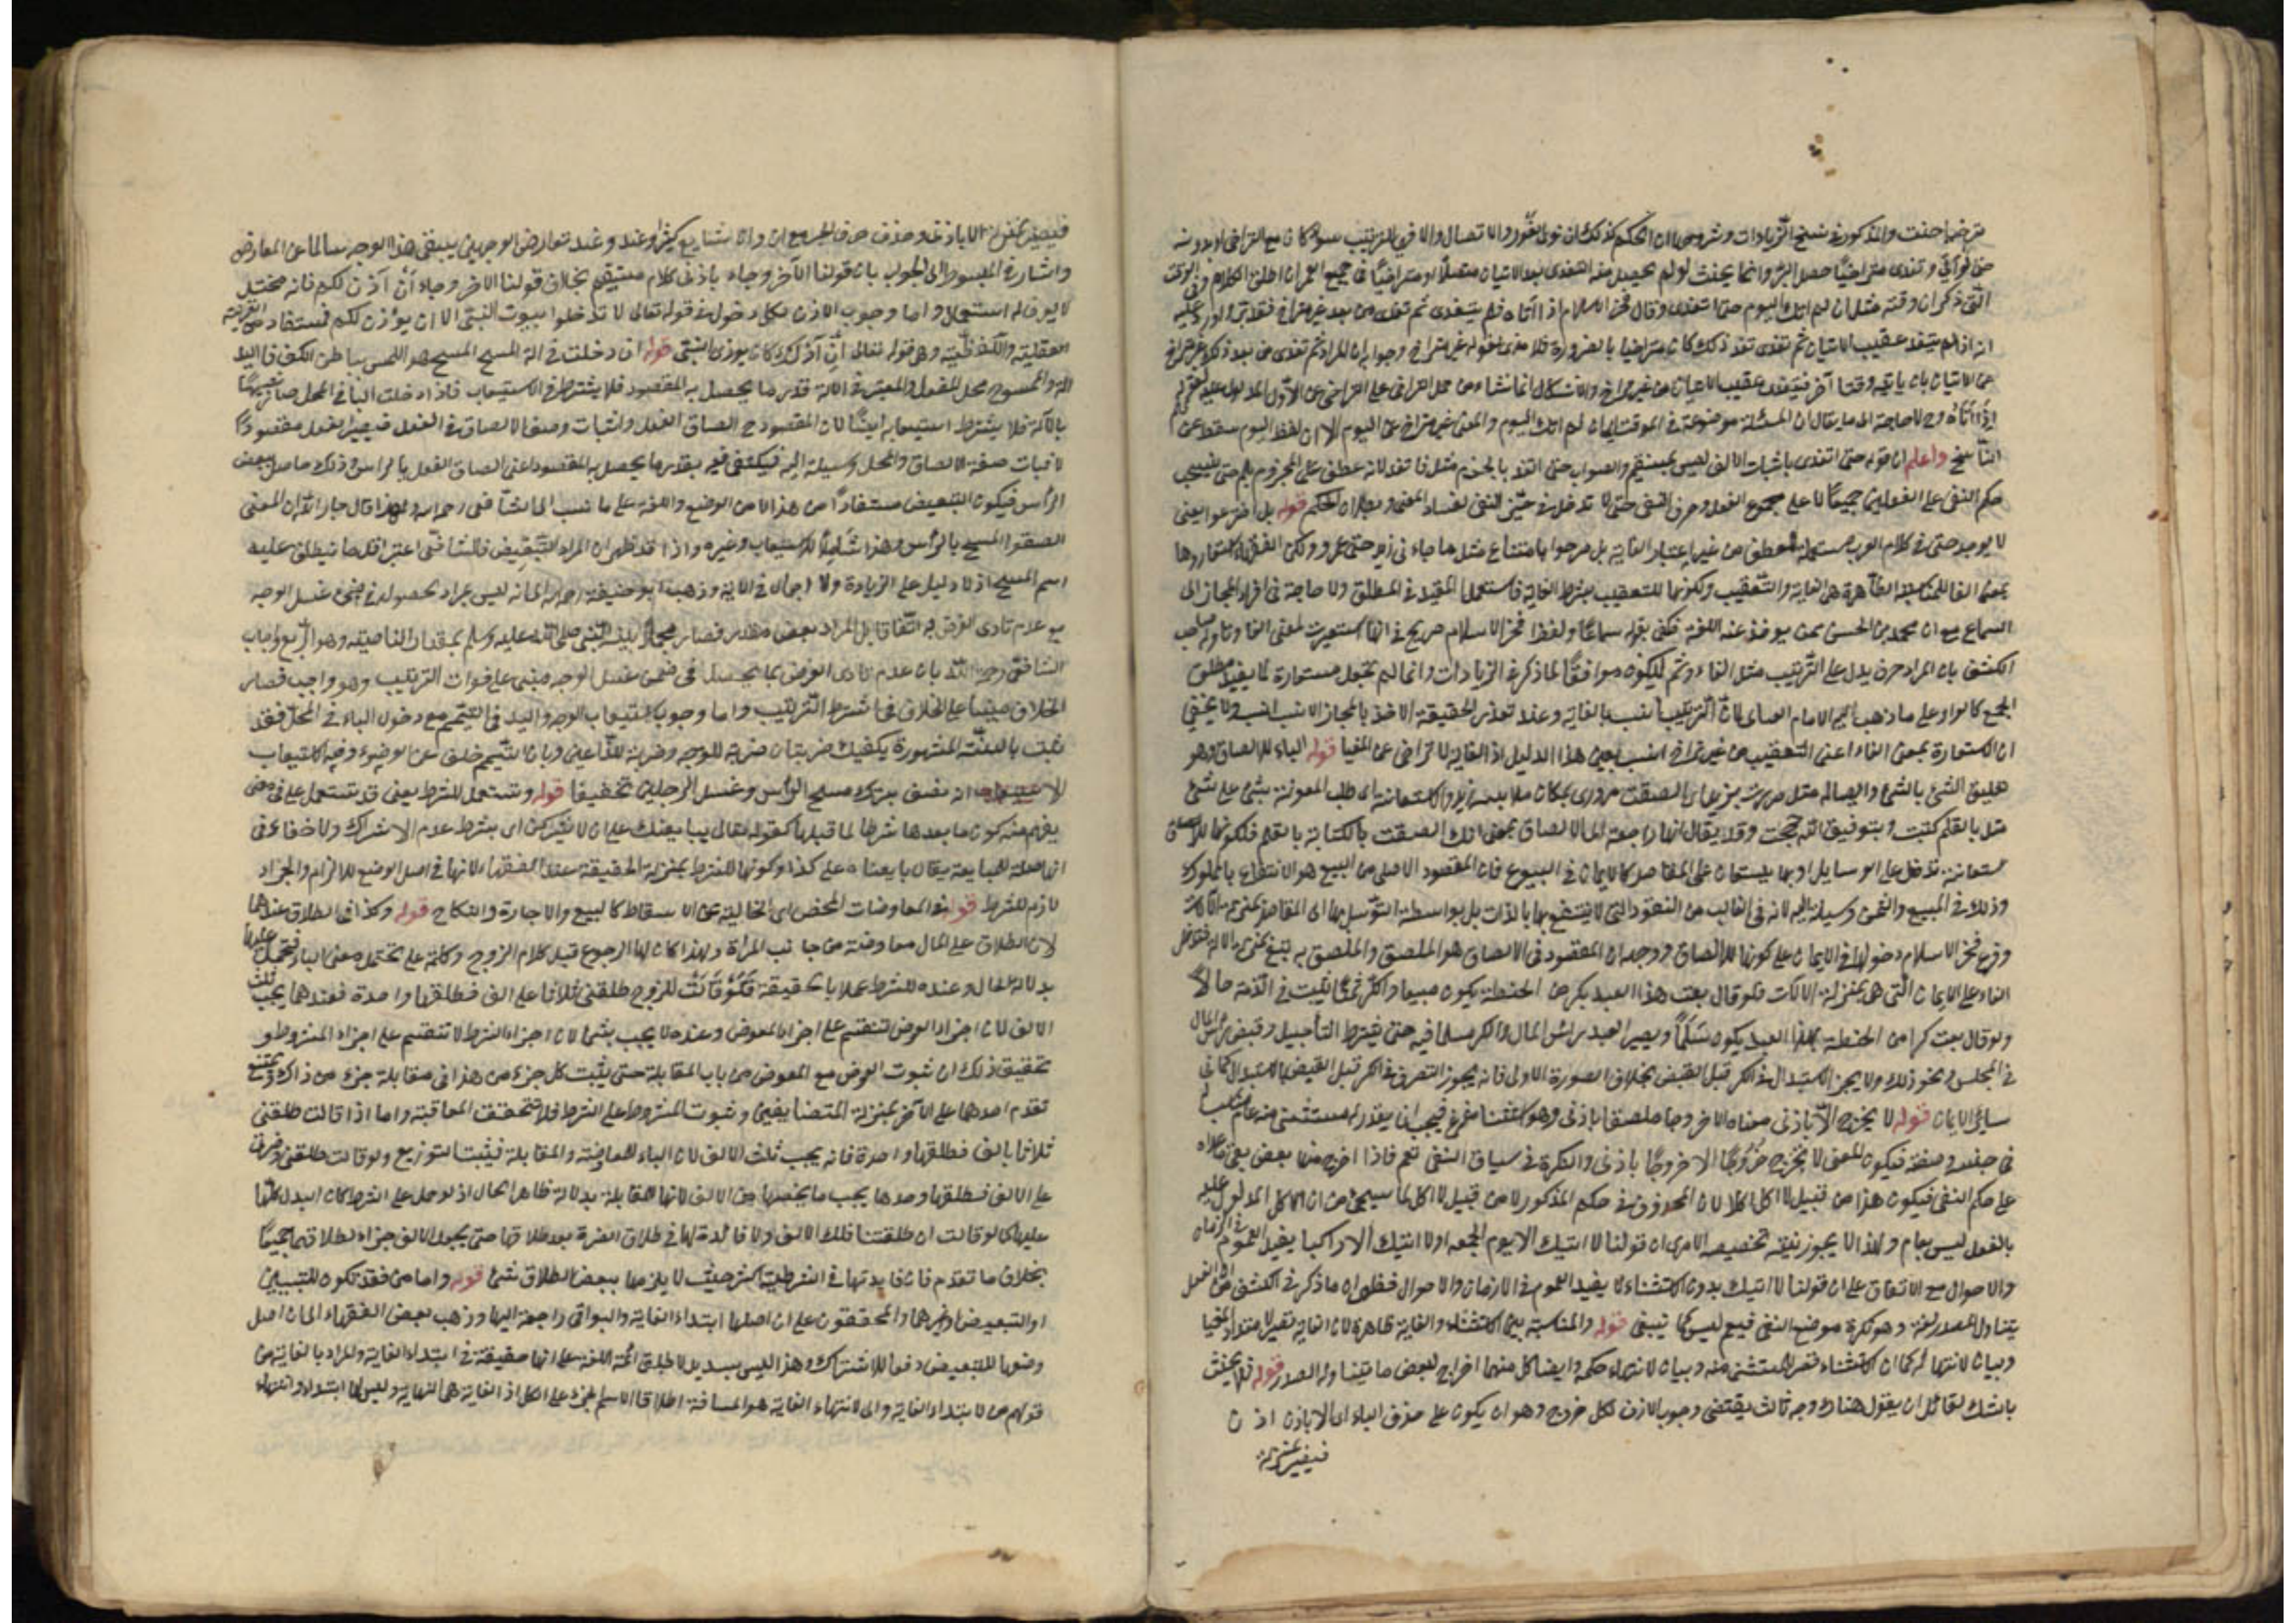 متراخيا حنث والمذكور في نسخ الزيادات وشروحها ان الحكم كذلك ان نوى الفور والاتصال والا فهي للترتيب سواء كان مع التراخي او بدونه
حتى لو اتى وتغدى متراخيا حصل البر وانما يحنث لو لم يحصل منه التغدى بعد الاتيان متصلا او متراخيا في جميع العمر ان اطلق الكلام وفي الوقت
الذي ذكره ان وقته مثل ان لم اتك اليوم حتى اتغدى وقال فخر الاسلام اذا اتاه فلم يتغدى ثم تغدى من بعد غير متراخ فقد بر واورد عليه
انه اذا لم يتغد عقيب الاتيان ثم تغدى بعد ذلك كان متراخيا بالضرورة فلا معنى لقوله غير متراخ وجوابه ان المراد ثم تغدى من بعد ذلك غير متراخ
عن الاتيان بان ياتيه وقتا آخر فيتغدى عقيب الاتيان من غير تراخ والاشكال انما نشاء من حمل التراخي على التراخي عن الاول المدلول عليه بقوله
اذا اتاه وح لا حاجة الى ما يقال ان المسئلة موضوعة في الموقت اي ان لم اتك اليوم والمعنى غير متراخ عن اليوم الا ان لفظ اليوم سقط عن
الناسخ واعلم ان قوله حتى اتغدى باثبات الالف ليس بمستقيم والصواب حتى اتغد بالجزم مثل فاتغد لانه عطف على المجزوم بلم حتى ينسحب
حكم النفي على الفعلين جميعا لا على مجموع الفعل وحرف النفي حتى لا تدخل في حيز النفي لفساد المعنى وبطلان الحكم قوله بل اخترعوا يعني
لا يوجد حتى في كلام العرب مستعملة للعطف من غير اعتبار الغاية بل صرحوا بامتناع مثل ما جاءني زيد حتى عمرو ولكن الفقهاء استعاروها
بمعنى الفا للمناسبة الظاهرة بين الغاية والتعقيب ولكونها للتعقيب بشرط الغاية فاستعمل المقيد في المطلق ولا حاجة في افراد المجاز الى
السماع مع ان محمد بن الحسن ممن يوخذ عنه اللغة فكفى بقوله سماعا ولفظ فخر الاسلام صريح في انها استعيرت لمعنى الفا وتاوله صاحب
الكشف بان المراد حرف يدل على الترتيب مثل الفاء وثم ليكون موافقا لما ذكر في الزيادات وانما لم يجعل مستعارة لما يفيد مطلق
الجمع كالواو على ما ذهب اليه الامام العتابي لان الترتيب انسب بالغاية وعند تعذر الحقيقة الاخذ بالمجاز الانسب انسب ولا يخفى
ان الاستعارة بمعنى الفاء اعني التعقيب من غير تراخ انسب بعين هذا الدليل اذ الغاية لا تتراخى عن المغيا قوله الباء للالصاق وهو
تعليق الشئ بالشئ وايصاله مثل مررت بزيد اي الصقت مروري بمكان ملابس زيد والاستعانة اي طلب المعونة بشئ على شئ
مثل بالقلم كتبت وبتوفيق الله حججت وقد يقال انها راجعة الى الالصاق بمعنى انك الصقت بالكتابة بالقلم فلكونها للاستعانة
تدخل على الوسايل اذ بها يستعان على المقاصد كالاثمان في البيوع فان المقصود الاصلي من البيع هو الانتفاع بالمملوك
وذلك في المبيع والثمن وسيلة اليه لانه في الغالب من النقود التي لا ينتفع بها بالذات بل بواسطة التوسل بها الى المقاصد بمنزلة الآلات
وفرع فخر الاسلام دخولها في الاثمان على كونها للالصاق ووجه ان المقصود في الالصاق هو الملصق والملصق به تبع بمنزلة الآلة فتدخل
الباء على الاثمان التي هي بمنزلة الآلات فلو قال بعت هذا العبد بكر من الحنطة يكون مبيعا والكر ثمنا يثبت في الذمة حالا
ولو قال بعت كرا من الحنطة بهذا العبد يكون سلما ويصير العبد براس المال والكر مسلما فيه حتى يشترط التأجيل وقبض راس المال
في المجلس ونحو ذلك ولا يجوز الاستبدال في الكر قبل القبض بخلاف الصورة الاولى فانه يجوز التصرف في الكر قبل القبض بالاستبدال كما في
سائر الاثمان قوله لا يخرج الا باذني معناه الا خروجا ملصقا باذني وهو استثناء مفرغ فيجب ان يقدر له مستثنى منه عام مناسب له
في جنسه وصفته فيكون المعنى لا يخرج خروجا الا خروجا باذني والنكرة في سياق النفي تعم فاذا اخرج منها بعض بقي ما عداه
على حكم النفي فيكون هذا من قبيل لا اكل اكلا لان المحذوف في حكم المذكور لا من قبيل لا اكل لما سيجئ من ان الاكل المدلول عليه
بالفعل ليس بعام ولهذا لا يجوز نية تخصيصه الا يرى ان قولنا لا اتيك الا يوم الجمعه او لا اتيك الا راكبا يفيد العموم في الازمان
والاحوال مع الاتفاق على ان قولنا لا اتيك بدون الاستثناء لا يفيد العموم في الازمان والاحوال فظهر ان ما ذكر في الكشف من ان الفعل
يتناول المصدر لغة وهو نكرة موضع النفي فيعم ليس كما ينبغي قوله والمناسبة بين الاستثناء والغاية ظاهرة لان الغاية قصر لامتداد المغيا
وبيان لانتهائه كما ان الاستثناء قصر للمستثنى منه وبيان لانتهاء حكمه وايضا كل منهما اخراج لبعض ما يتناوله الصدر قوله فلا يحنث
بالشك لقائل ان يقول هناك وجه ثالث يقتضي وجوب الاذن لكل خروج وهو ان يكون على حذف الباء اي الا بان اذن
فيصير بمنزلة
فيصير بمنزلة الا باذني وحذف حرف الجر مع ان وان شايع كثير وعند تعارض الوجهين يبقى هذا الوجه سالما عن المعارض
واشار في المبسوط الى الجواب بان قولنا الا خروجا باذني كلام مستقيم بخلاف قولنا الا خروجا ان آذن لكم فانه مختل
لا يعرف له استعمال واما وجوب الاذن لكل دخول في قوله تعالى لا تدخلوا بيوت النبي الا ان يؤذن لكم فمستفاد من القرينة
العقلية واللفظية وهي قوله تعالى ان ذلكم كان يوذي النبي قوله ان دخلت في آلة المسح المسح هو اللمس بباطن الكف فاليد
آلة والممسوح محل للفعل والمعتبر في الآلة قدر ما يحصل به المقصود فلا يشترط فيه الاستيعاب فاذا دخلت الباء في المحل صار شبيها
بالآلة فلا يشترط استيعابه ايضا لان المقصود ح الصاق الفعل واثبات وصف الالصاق في الفعل فيصير الفعل مقصودا
لاثبات صفة الالصاق والمحل وسيلة اليه فيكتفي فيه بقدر ما يحصل به المقصود اعني الصاق الفعل بالراس وذلك حاصل ببعض
الرأس فيكون التبعيض مستفادا من هذا لا من الوضع واللغة على ما نسب الى الشافعي رحمه الله ولهذا قال جار الله ان المعنى
الصقوا المسح بالرأس وهذا شامل للاستيعاب وغيره واذا قد ظهر ان المراد التبعيض فالشافعي اعتبر اقل ما ينطلق عليه
اسم المسح اذ لا دليل على الزيادة ولا اجمال في الآية وذهب ابو حنيفة رحمه الله الى انه ليس بمراد لحصوله في ضمن غسل الوجه
مع عدم تادى الفرض به اتفاقا بل المراد بعض مقدر فصار مجملا بينه النبي صلى الله عليه وسلم بمقدار الناصية وهو الربع واجاب
الشافعي رحمه الله بان عدم تادى الفرض بما يحصل في ضمن غسل الوجه مبني على فوات الترتيب وهو واجب فصار
الخلاف مبنيا على الخلاف في اشتراط الترتيب واما وجوب استيعاب الوجه واليد في التيمم مع دخول الباء في المحل فقد
ثبت بالسنة المشهورة يكفيك ضربتان ضربة للوجه وضربة للذراعين وبان التيمم خلف عن الوضوء وفيه الاستيعاب
الا انه نصف بترك مسح الرأس وغسل الرجلين تخفيفا قوله وتستعمل للشرط يعني قد تستعمل على في معنى
يفهم منه كون ما بعدها شرطا لما قبلها كقوله تعالى يبايعنك على ان لا يشركن اي بشرط عدم الاشراك ولا خفاء في
انها صلة للمبايعة يقال بايعناه على كذا وكونها للشرط بمنزلة الحقيقة عند الفقهاء لانها في اصل الوضع للالزام والجزاء
لازم للشرط قوله في المعاوضات المحضة اي الخالية عن الاسقاط كالبيع والاجارة والنكاح قوله وكذا في الطلاق عندهما
لان الطلاق على المال معاوضة من جانب المرأة ولهذا كان لها الرجوع قبل كلام الزوج وكلمة على تحتمل معنى الباء فتحمل عليها
بدلالة الحال وعنده للشرط عملا بالحقيقة فلو قالت للزوج طلقني ثلاثا على الف فطلقها واحدة فعندهما يجب ثلث
الالف لان اجزاء العوض تنقسم على اجزاء المعوض وعنده لا يجب شئ لان اجزاء الشرط لا تنقسم على اجزاء المشروط
تحقيق ذلك ان ثبوت العوض مع المعوض من باب المقابلة حتى يثبت كل جزء من هذا في مقابلة جزء من ذاك ويمتنع
تقدم احدهما على الآخر بمنزلة المتضايفين وثبوت المشروط على الشرط فلا تتحقق المعاقبة واما اذا قالت طلقني
ثلاثا بالف فطلقها واحدة فانه يجب ثلث الالف لان الباء للمعاوضة والمقابلة فيثبت التوزيع ولو قالت طلقني وضرتي
على الف فطلقها وحدها يجب ما يخصها من الالف لانها للمقابلة بدلالة ظاهر الحال اذ لو حمل على الشرط كان البدل كلها
عليها كما لو قالت ان طلقتنا فلك الالف ولا فائدة لها في طلاق الضرة بعد طلاقها حتى يجعل الالف جزاء لطلاقهما جميعا
بخلاف ما تقدم فان فايدتها في الشرطية اكثر حيث لا يلزمها ببعض الطلاق شئ قوله واما من فقد تكون للتبيين
او التبعيض او غيرهما والمحققون على ان اصلها ابتداء الغاية والبواقي راجعة اليها وذهب بعض الفقهاء الى ان اصل
وضعها للتبعيض دفعا للاشتراك وهذا ليس بسديد لاطباق ائمة اللغة على انها حقيقة في ابتداء الغاية والمراد بالغاية من
قولهم من لابتداء الغاية والى لانتهاء الغاية هو المسافة اطلاقا لاسم الجزء على الكل اذ الغاية هي النهاية وليس لها ابتداء وانتهاء